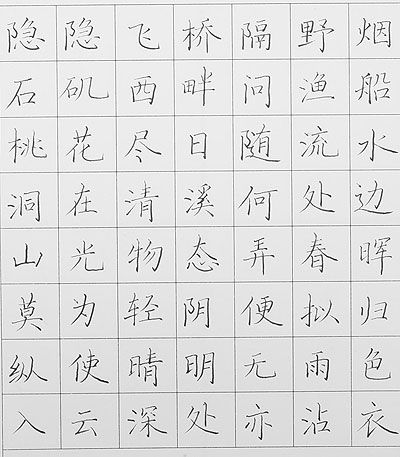 隐隐飞桥隔野烟
石矶西畔问渔船
桃花尽日随流水
洞在清溪何处边
山光物态弄春晖
莫为轻阴便拟归
纵使晴明无雨色
入云深处亦沾衣